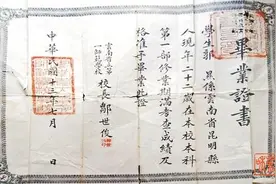 畢業證書
學生鄒
昆係雲南省昆明縣
人現年二十二歲在本校本科
第一部修業期滿考查成績及
格准予畢業此證
雲南省立第一師範學校
校長鄒世俊
中華民國十三年七月 日